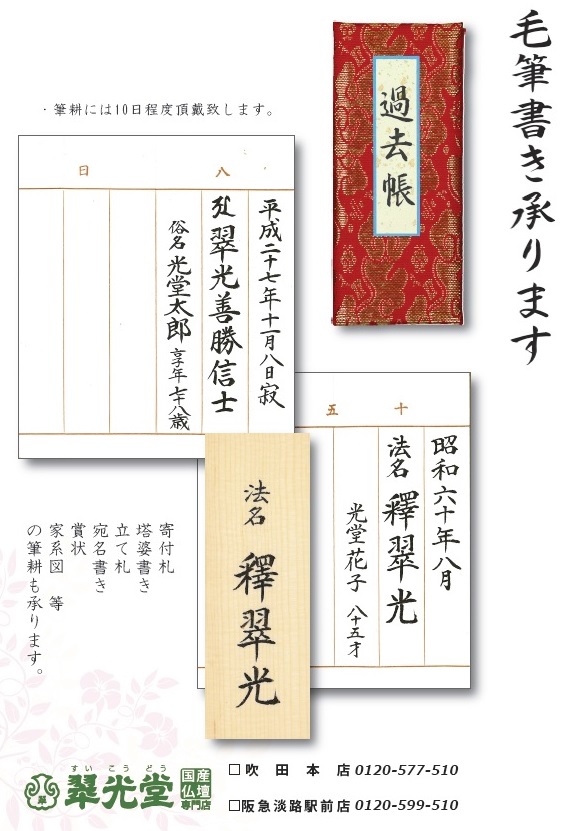 毛筆書き承ります
過去帳
・筆耕には10日程度頂戴致します。
八日
平成二十七年十一月八日寂
翠光善勝信士
俗名 光堂太郎 享年七十八歳
十五
昭和六十年八月
法名 釋翠光
光堂花子 八十五才
法名 釋翠光
寄付札
塔婆書き
立て札
宛名書き
賞状
家系図 等
の筆耕も承ります。
すいこうどう
翠光堂
国産
仏壇
専門店
□吹田本店 0120-577-510
□阪急淡路駅前店 0120-599-510